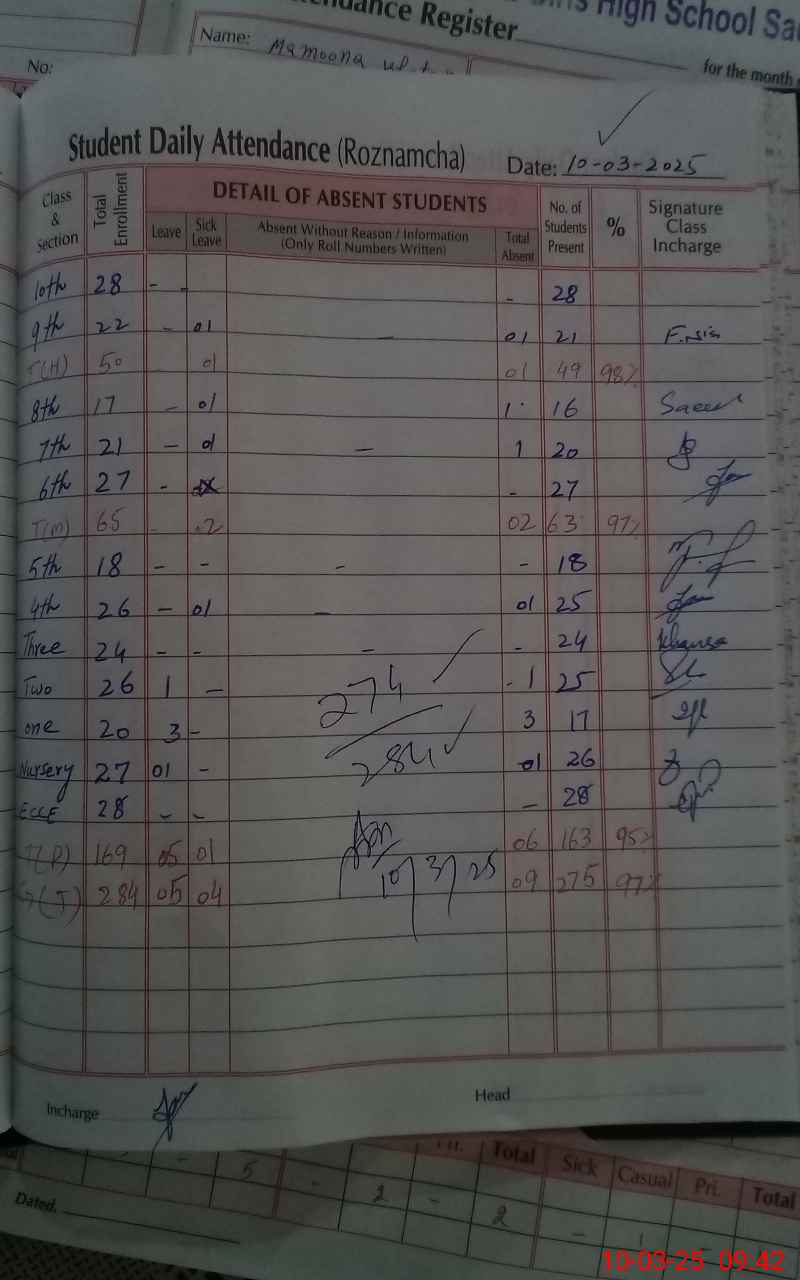 Attendance Register
High School
Name: Mamoona
for the month
No:
Student Daily Attendance (Roznamcha) Date: 10-03-2025
Class & Section Total Enrollment DETAIL OF ABSENT STUDENTS No. of Students Present % Signature Class Incharge
Leave Sick Leave Absent Without Reason / Information (Only Roll Numbers Written) Total Absent
10th 28 - - - 28
9th 22 - 01 - 01 21
T(H) 50 01 01 49 98%
8th 17 - 01 1 16 Saeed
7th 21 - 01 - 1 20
6th 27 - - 27
T(M) 65 - 02 02 63 97%
5th 18 - - - - 18
4th 26 - 01 - 01 25
Three 24 - - - - 24 Khansa
Two 26 1 - - 1 25
one 20 3 - 3 17
Nursery 27 01 - 01 26
ECCE 28 - - - 28
T(P) 169 05 01 06 163 95%
G(T) 284 05 04 09 275 97%
274
284
10/3/25
Incharge
Head
Total Sick Casual Pri. Total
5 - 2 - 2 - 1
Dated.
10-03-25 09:42